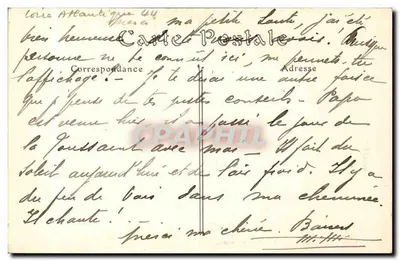 Loire Atlantique 44
merci ma petite Loute, j'ai été
bien heureuse
Carte Postale
personne ne te connait ici, me permets-tu
Correspondance
Adresse
l'affichage? - Je te dirai une autre fois ce
que je pense de tes justes conseils - Papa
est venu hier, et a passé le jour de
la Toussaint avec moi - Il fait du
soleil aujourd'hui et de l'air froid. Il y a
du feu de bois dans ma cheminée.
Il chante!
merci ma chérie. Baisers
CARTES
CPAPHIL